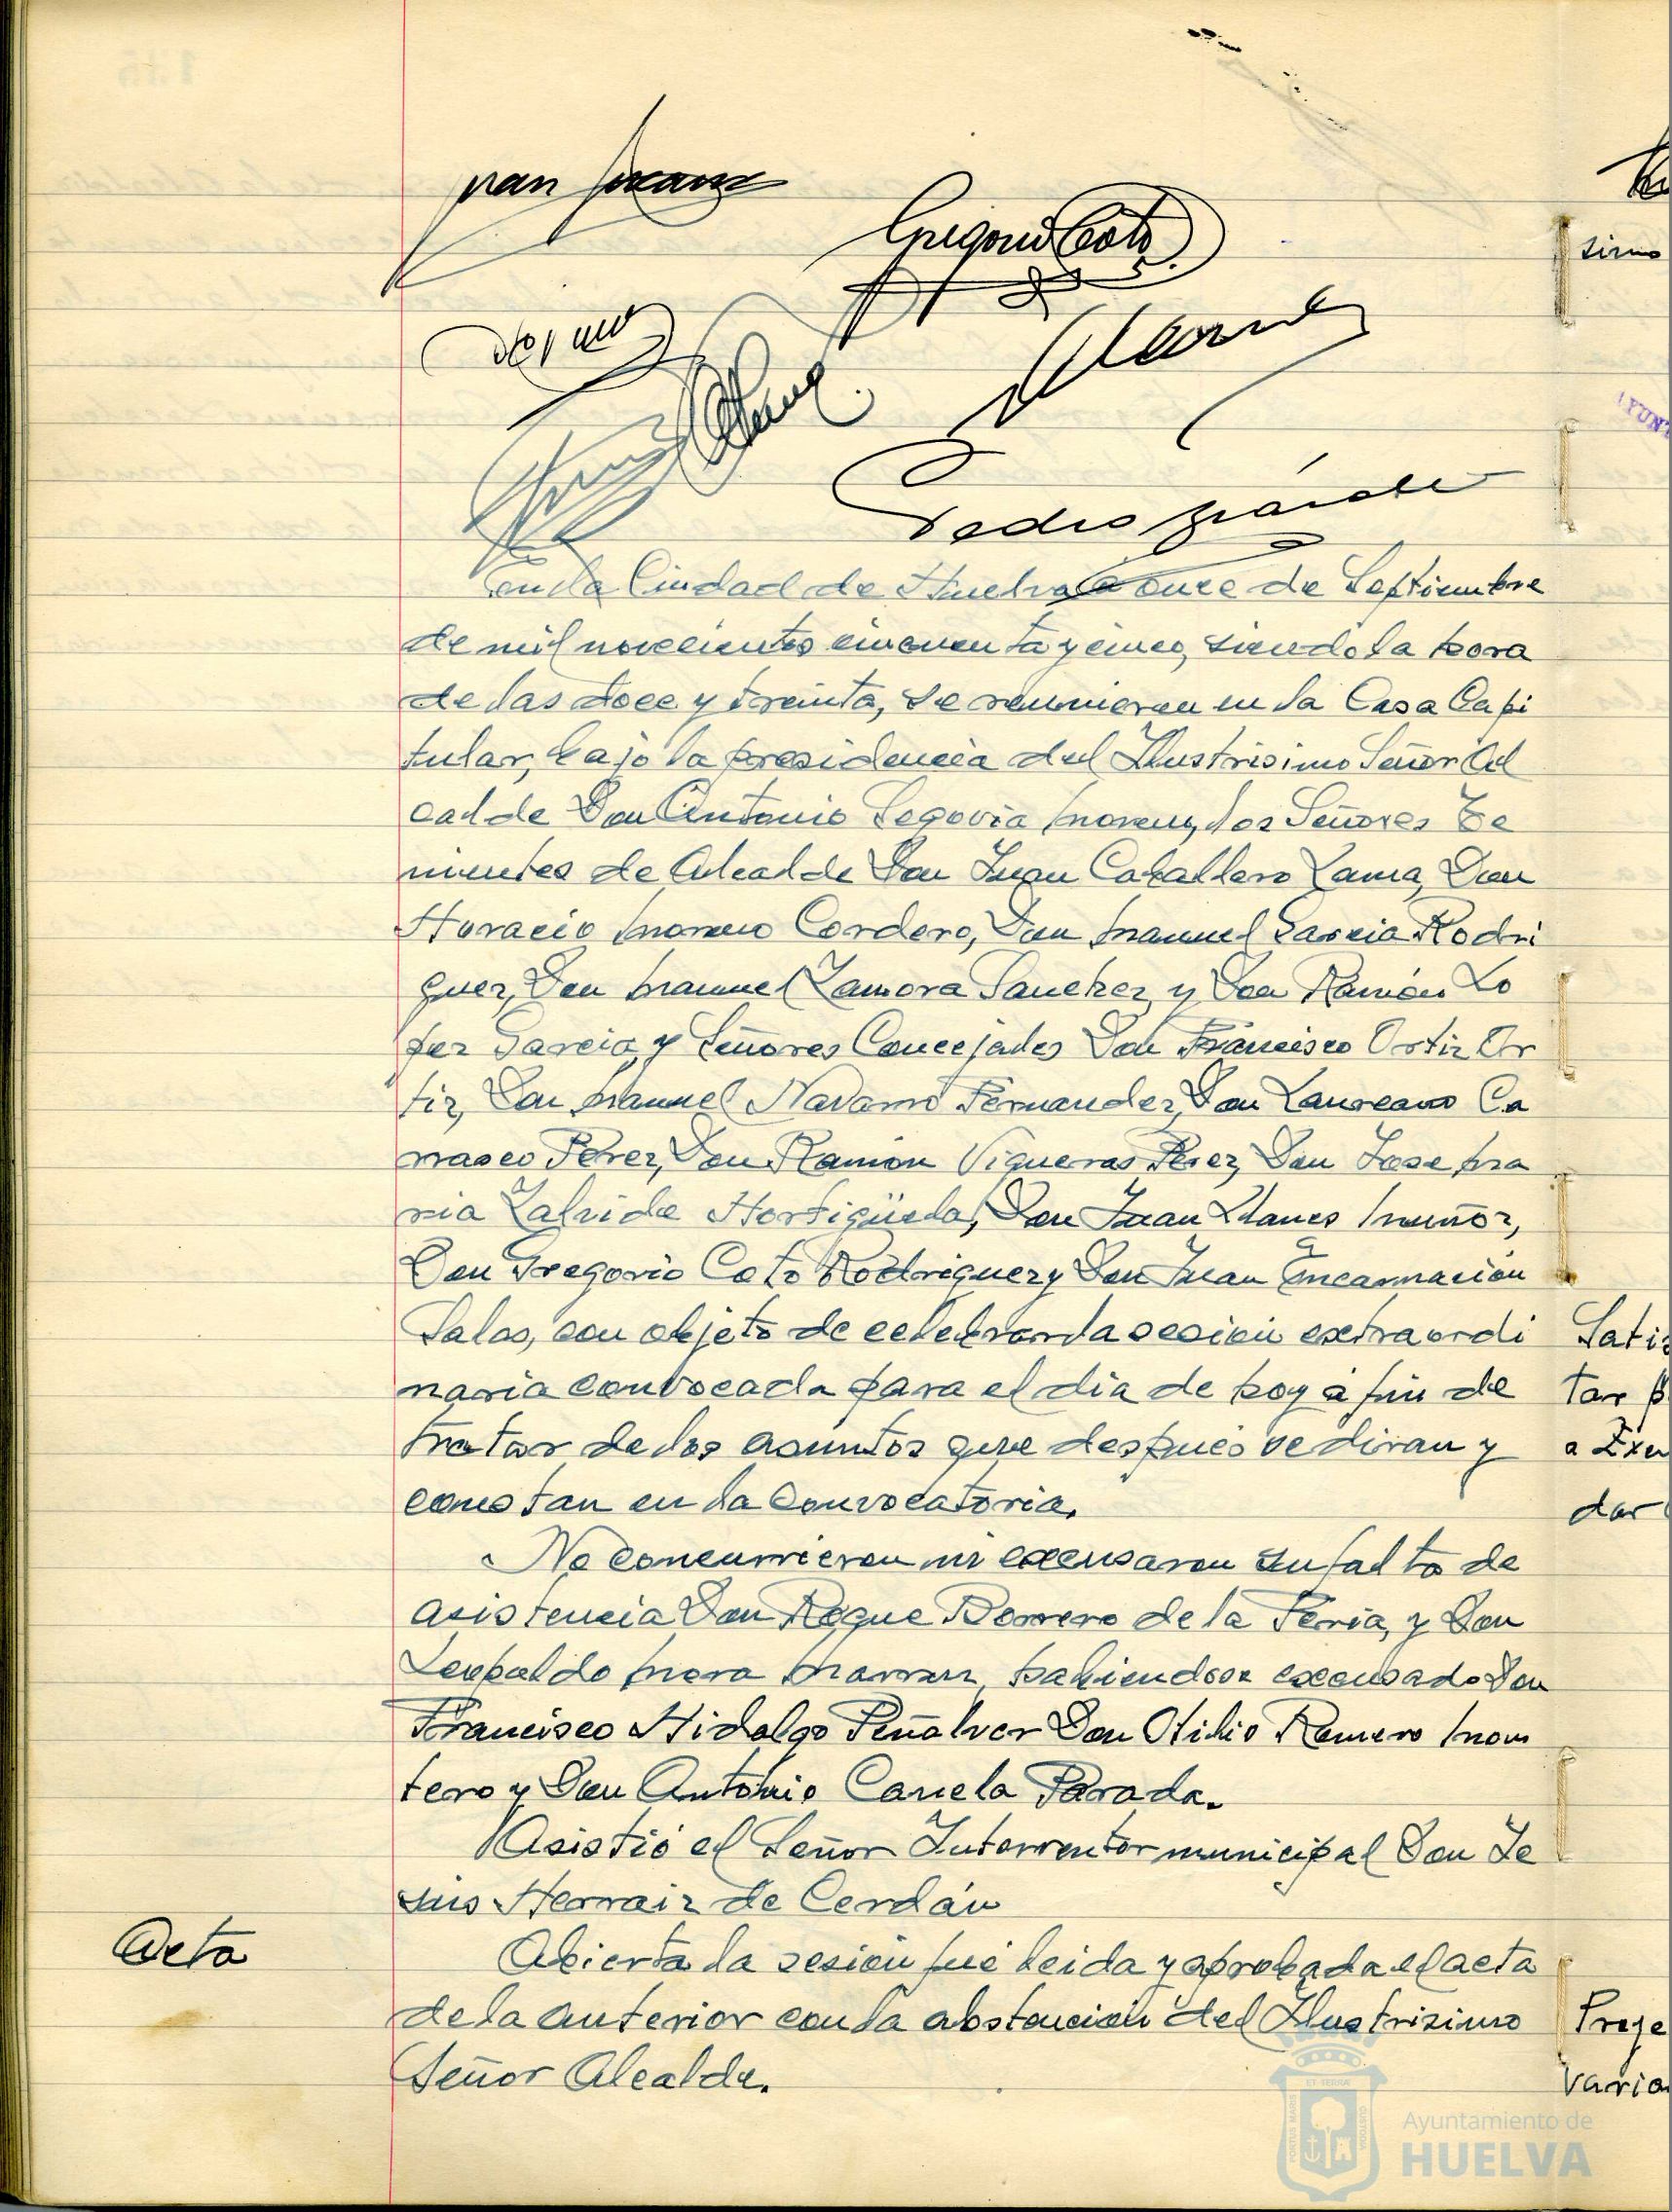 Gregorio Coto
Pedro
En la Ciudad de Huelva a once de Septiembre
de mil novecientos cincuenta y cinco, siendo la hora
de las doce y treinta, se reunieron en la Casa Capi
tular, bajo la presidencia del Ilustrisimo Señor Al
calde Don Antonio Segovia Moreno, los Señores Te
nientes de Alcalde Don Juan Caballero Lama, Don
Horacio Moreno Cordero, Don Manuel Garcia Rodri
guez, Don Manuel Zamora Sanchez, y Don Ramón Lo
pez Garcia, y Señores Concejales Don Francisco Ortiz Or
tiz, Don Manuel Navarro Fernandez, Don Laureano Ca
rrasco Perez, Don Ramón Vigueras Perez, Don Jose Ma
ria Zalvide Hortigüela, Don Juan Llanes Muñoz,
Don Gregorio Coto Rodriguez y Don Juan Encarnación
Salas, con objeto de celebrar la sesion extraordi
naria convocada para el dia de hoy a fin de
tratar de los asuntos que despues se diran y
constan en la convocatoria.
No concurrieron ni excusaron su falta de
asistencia Don Roque Borrero de la Feria, y Don
Leopoldo Mora, habiendose excusado Don
Francisco Hidalgo Peñalver Don Otilio Romero Mon
tero y Don Antonio Canela Parada.
Asistió el Señor Interventor municipal Don Je
sus Herraiz de Cerdán
Acta
Abierta la sesión fué leida y aprobada el acta
de la anterior con la abstención del Ilustrisimo
Señor Alcalde.
simo
AYUNT
Satis
tar p
a Exn
dar
Proye
varia
PORTUS MARIS
ET TERRÆ
CUSTODIA
Ayuntamiento de
HUELVA